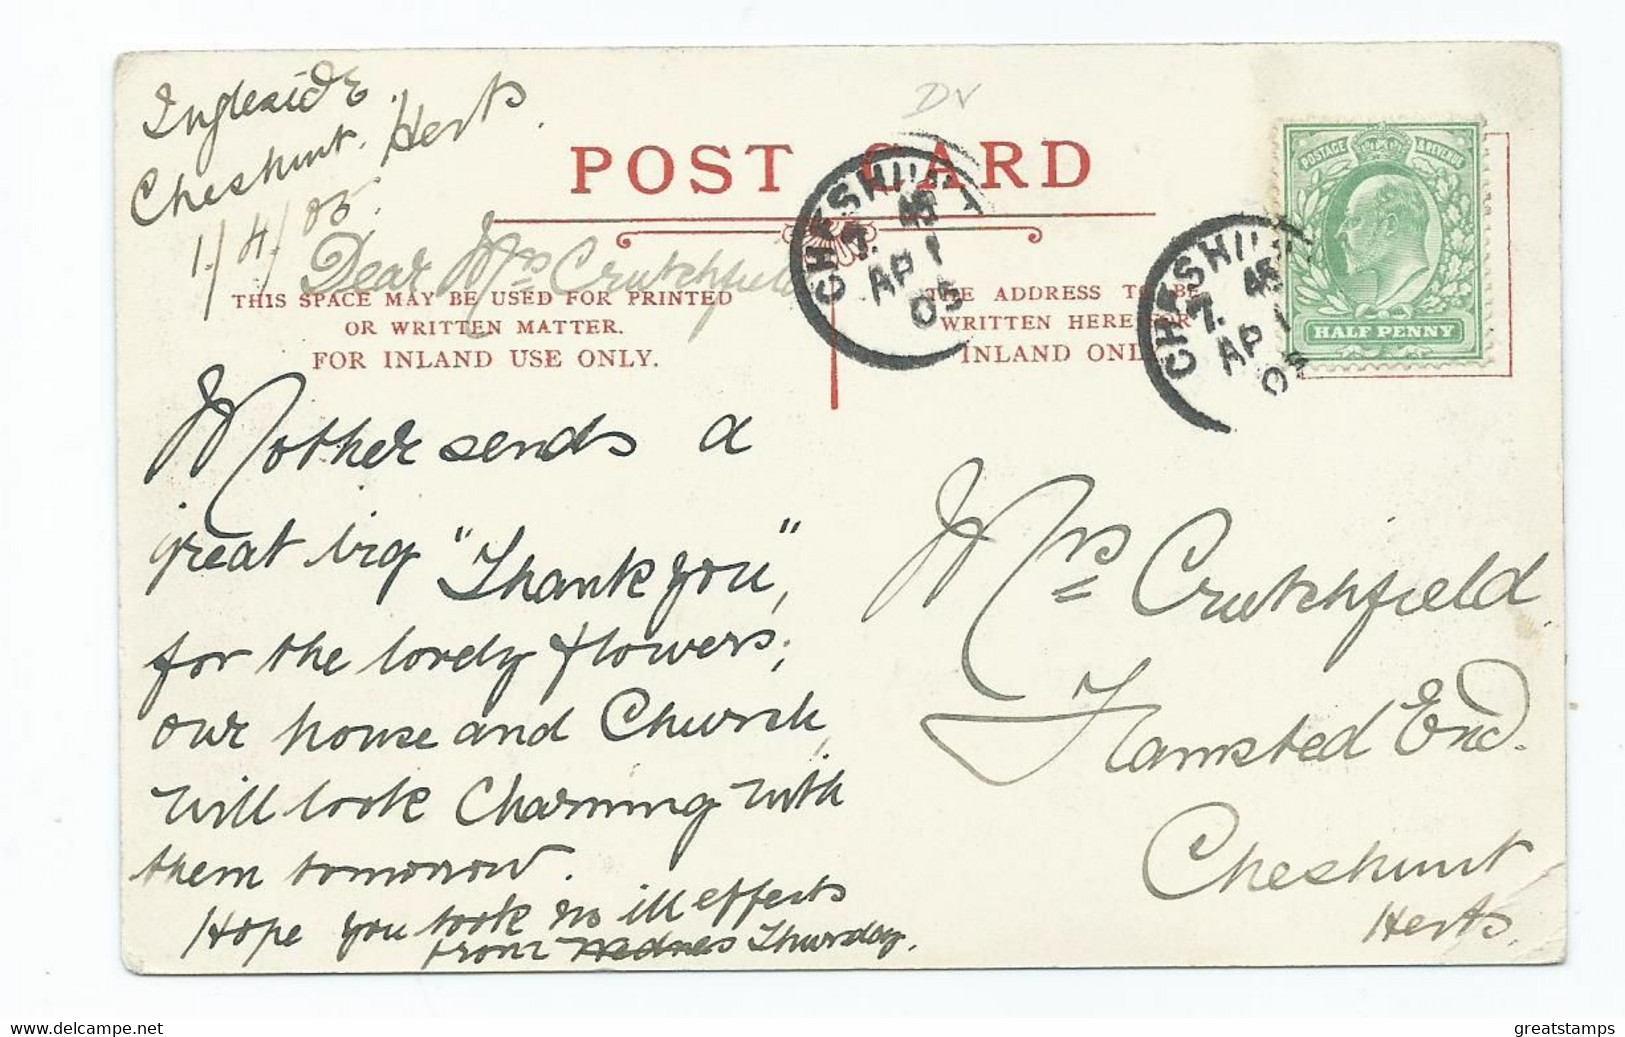 Ingleside
Cheshunt. Herts.
1/4/05.
DV
POST CARD
Dear Mrs Crutchfield
THIS SPACE MAY BE USED FOR PRINTED
OR WRITTEN MATTER.
FOR INLAND USE ONLY.
THE ADDRESS TO BE
WRITTEN HERE FOR
INLAND ONLY
CHESHUNT
7. 45
AP 1
05
CHESHUNT
7. 45
AP 1
05
POSTAGE & REVENUE
HALF PENNY
Mother sends a
great big "Thank you",
for the lovely flowers;
our house and Church
will look Charming with
them tomorrow.
Hope you took no ill effects
from Wednes Thursday.
Mrs Crutchfield.
Flamsted End.
Cheshunt
Herts.
www.delcampe.net
greatstamps